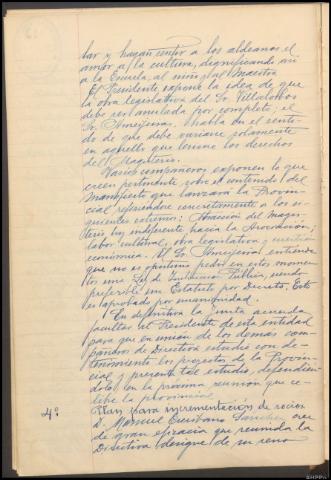 bar y hagan sentir a los aldeanos el
amor a la cultura, dignificando así
a la Escuela, al niño y al Maestro.
El Presidente expone la idea de que
la obra legislativa del Sr. Villalobos
debe ser anulada por completo; el
Sr. habla en el senti-
do de que debe variarse solamente
en aquello que lesione los derechos
del Magisterio.
Varios compañeros exponen lo que
creen pertinente sobre el contenido del
Manifiesto que lanzará la Provin-
cial refiriéndose concretamente a los si-
guientes extremos: Atracción del magis-
terio hoy indiferente hacia la Asociación;
labor cultural, obra legislativa y cuestión
económica. El Sr. entiende
que no es oportuno pedir en estos momen-
tos una Ley de Instrucción Pública, siendo
preferible un Estatuto por Decreto. Esto
es aprobado por unanimidad.
En definitiva la Junta acuerda
facultar al Presidente de esta entidad
para que en unión de los demás com-
pañeros de Directiva estudie con de-
tenimiento los proyectos de la Provin-
cial y presente tal estudio, defendién-
dolo en la próxima reunión que ce-
lebre la provincial.
4º Plan para incrementación de socios
D. Manuel Escribano Sánchez cree
de gran eficacia que reunida la
Directiva designe de su seno
AHPP